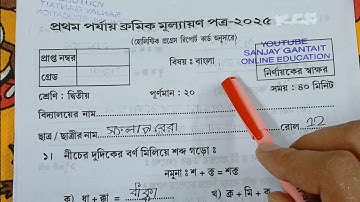 প্রথম পর্যায় ক্রমিক মূল্যায়ণ পত্র-২০২৫
(হোলিস্টিক প্রগ্রেস রিপোর্ট কার্ড অনুসারে)
YOUTUBE
SANJAY GANTAIT
ONLINE EDUCATION
প্রাপ্ত নম্বর
গ্রেড
বিষয় : বাংলা
নির্ণায়কের স্বাক্ষর
শ্রেণি : দ্বিতীয়
পূর্ণমান : ২০
সময় : ৪০ মিনিট
বিদ্যালয়ের নাম
ছাত্র / ছাত্রীর নাম
রোল 12
১। নীচের দুদিকের বর্ণ মিলিয়ে শব্দ গড়ো :
নমুনা : শ + ক্ত = শক্ত
ক) ধা + ক্কা =
খ) ক + মি + ক